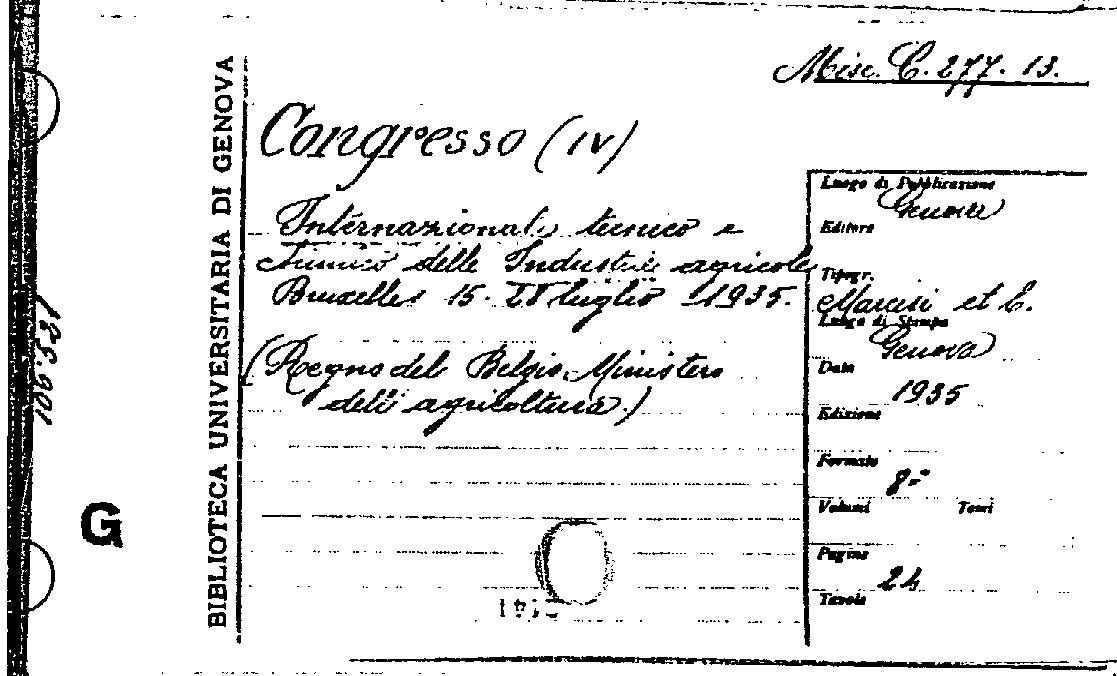 Misc. C. 277. 13.
BIBLIOTECA UNIVERSITARIA DI GENOVA
Congresso (IV)
Internazionale tecnico e
chimico delle Industrie agricole
Bruxelles 15. 28 luglio 1935.
(Regno del Belgio. Ministero
dell'agricoltura.)
Luogo di Pubblicazione
Genova
Editore
Tipogr.
et C.
Luogo di Stampa
Genova
Data
1935
Edizione
Formato
8-°
Volumi Tomi
Pagine
24
Tavole
106.521
G